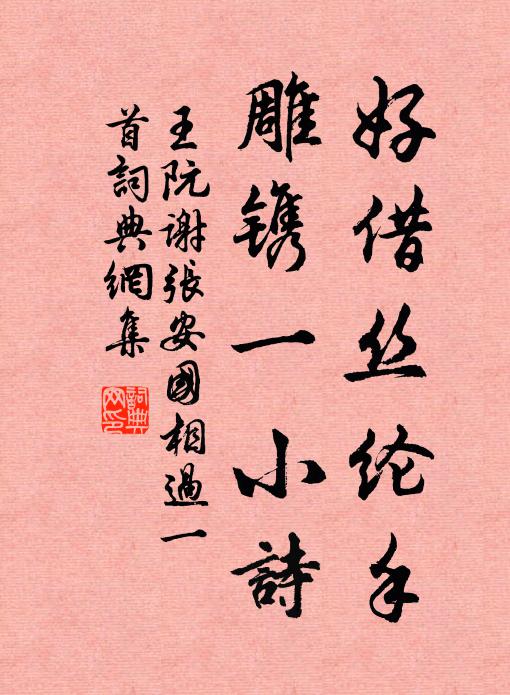 好借丝纶手
雕镌一小詩
王阮谢張安國相過一
首詞典網集
詞典网印